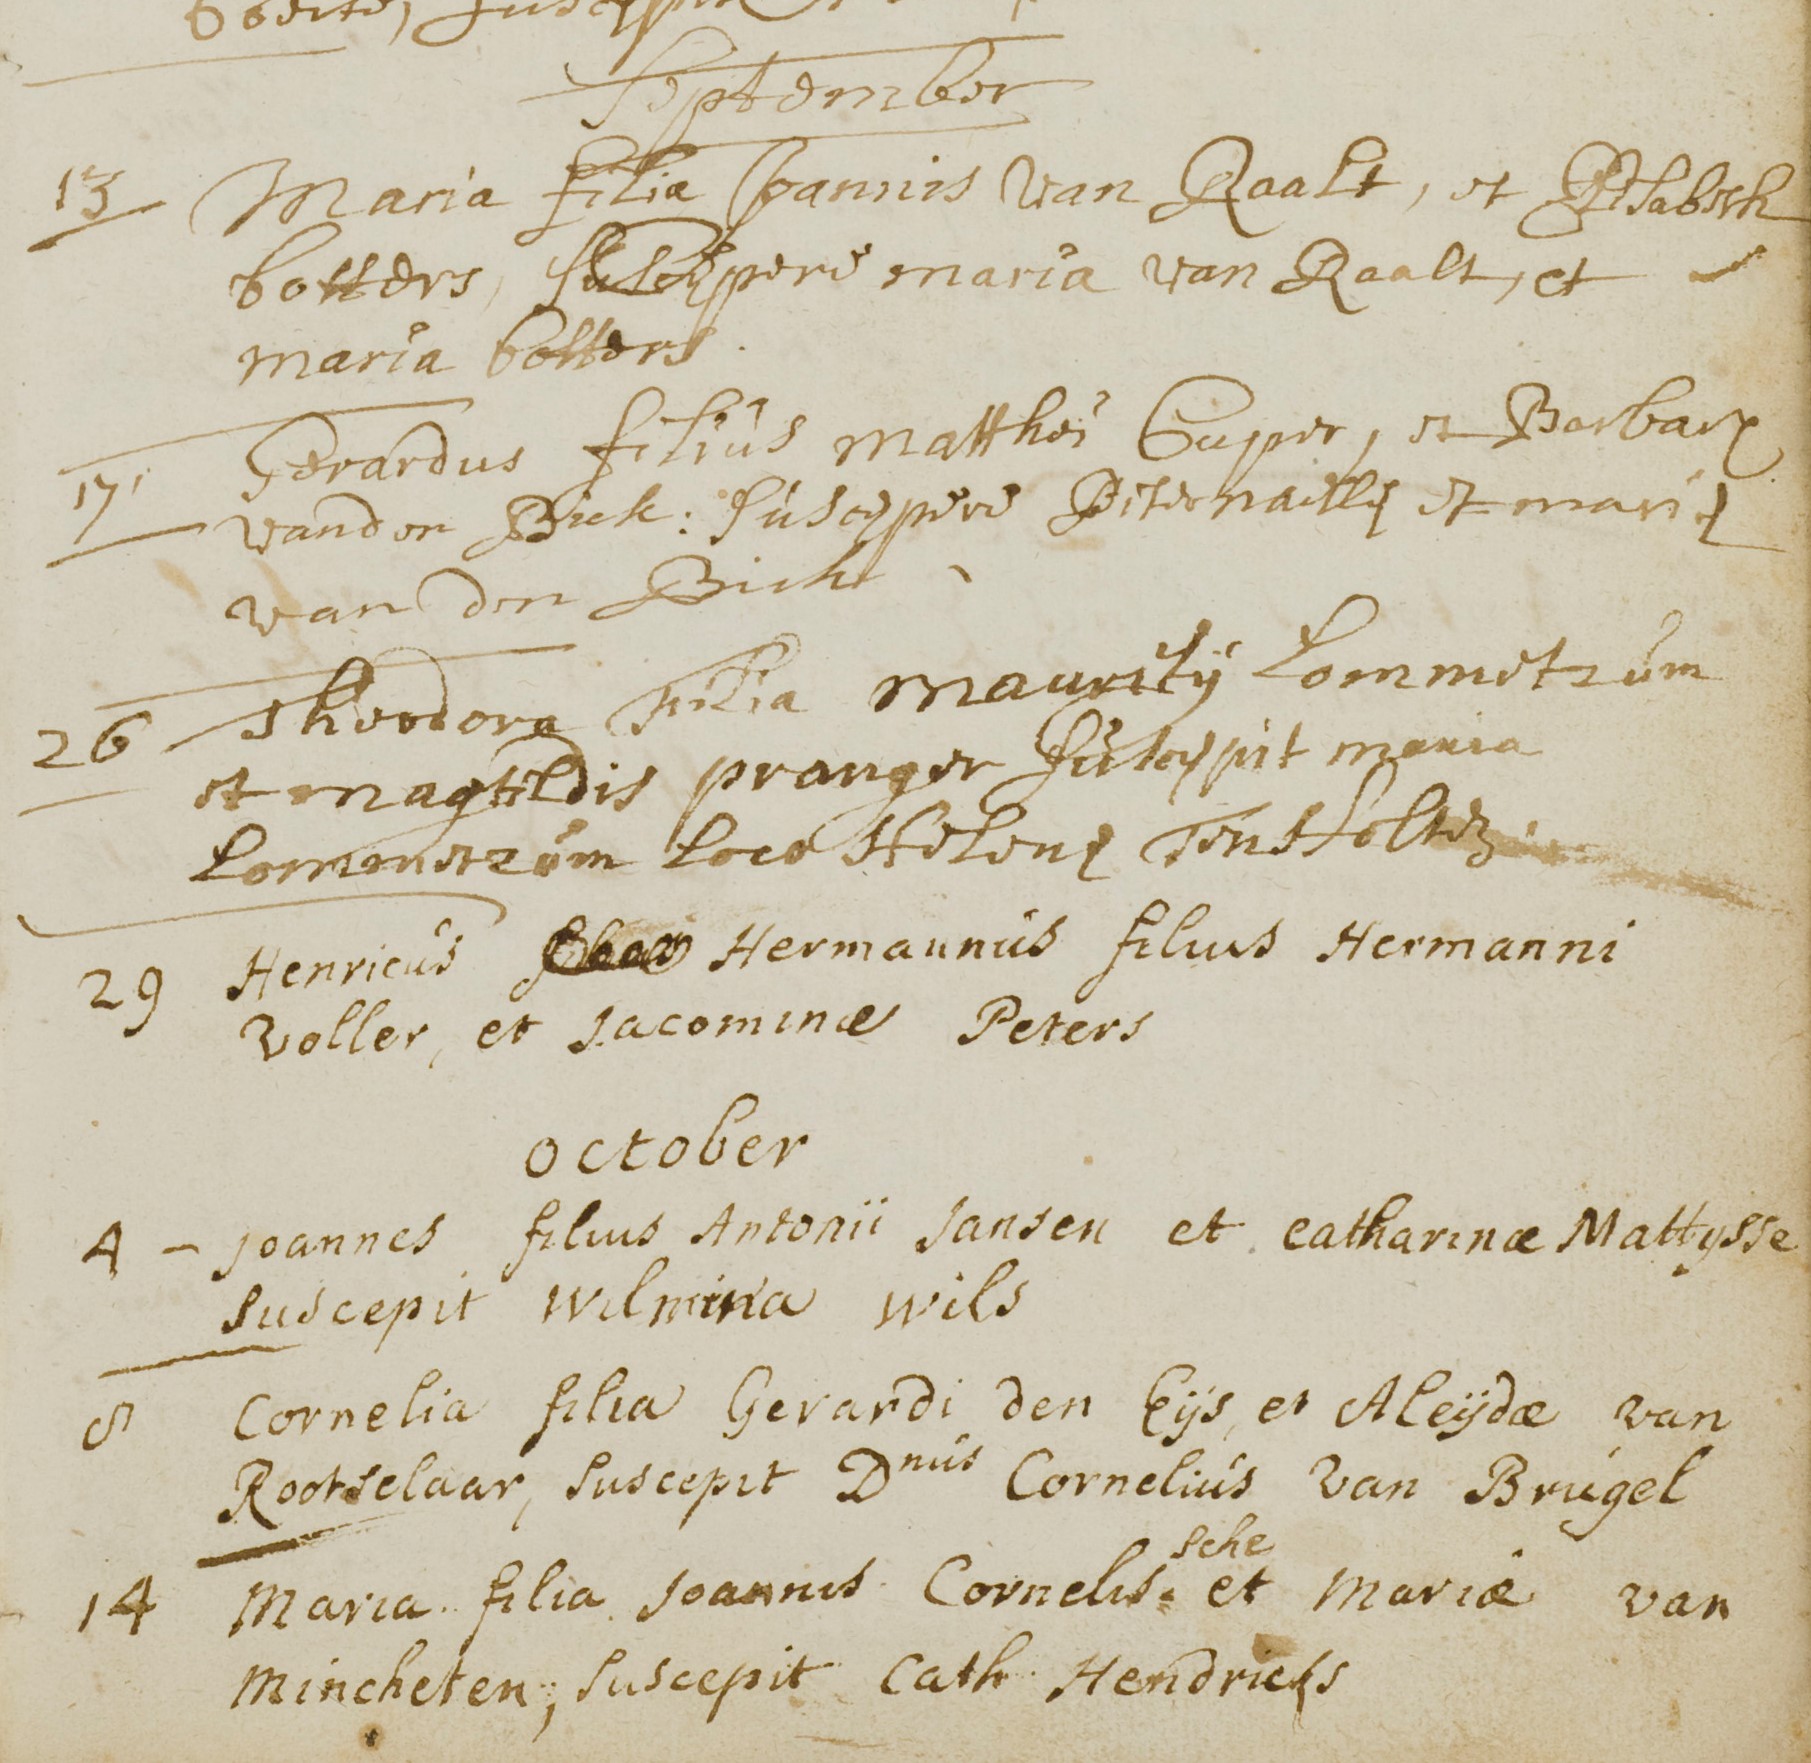 September
13 Maria filiæ Joannis van Raalt, et Elsabeth
botters, suscepere maria van Raalt, et
maria botters.
17 Gerardus filius matthei Cuper, et Barbaræ
vanden Bick: suscepere et marię
van den Bick
26 Theodora Filia mauritÿ Lommetzúm
et magtildis pranger suscepit maria
Lommetzúm loco Helenę Tenholte
29 Henricús Hermannús filius Hermanni
Voller, et Jacominæ Peters
October
4 - Joannes filius Antonii Jansen et Catharinæ Mattysse
suscepit Wilmina Wils
8 Cornelia filia Gerardi den Eÿs, et Aleÿdæ van
Rootselaar, suscepit Dnús Cornelius van Brúgel
sche
14 Maria filia Joannis Cornelis: et Mariæ van
Mincheten, suscepit Cath Hendricks